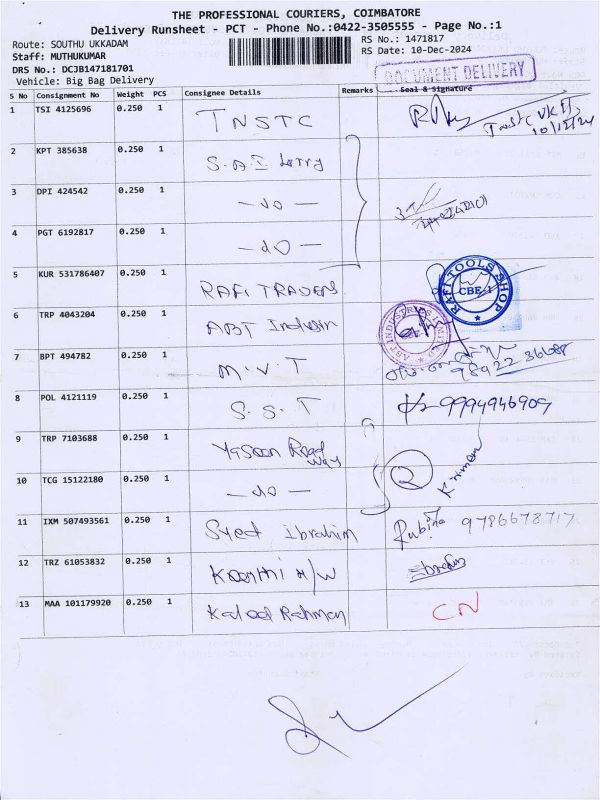 THE PROFESSIONAL COURIERS, COIMBATORE
Delivery Runsheet - PCT - Phone No.:0422-3505555 - Page No.:1
Route: SOUTHU UKKADAM
RS No.: 1471817
Staff: MUTHUKUMAR
RS Date: 10-Dec-2024
DRS No.: DCJB147181701
Vehicle: Big Bag Delivery
DOCUMENT DELIVERY
S No Consignment No Weight PCS Consignee Details Remarks Seal & Signature
1 TSI 4125696 0.250 1 TNSTC
10/12/24
2 KPT 385638 0.250 1 S.A.I Lorry
3 DPI 424542 0.250 1 — do —
4 PGT 6192817 0.250 1 — do —
5 KUR 531786407 0.250 1 RAFI TRADERS
RAFI TOOLS SHOP CBE-1
6 TRP 4043204 0.250 1 ABT Indusm
ABT INDUSTRIES LIMITED
7 BPT 494782 0.250 1 M.V.T
8 POL 4121119 0.250 1 S.S.T 9994946909
9 TRP 7103688 0.250 1 Yaseen Road way
10 TCG 15122180 0.250 1 — do —
11 IXM 507493561 0.250 1 Syed Ibrahim Rubina 9786678717
12 TRZ 61053832 0.250 1 H/W
13 MAA 101179920 0.250 1 Kaleel Rahman CN